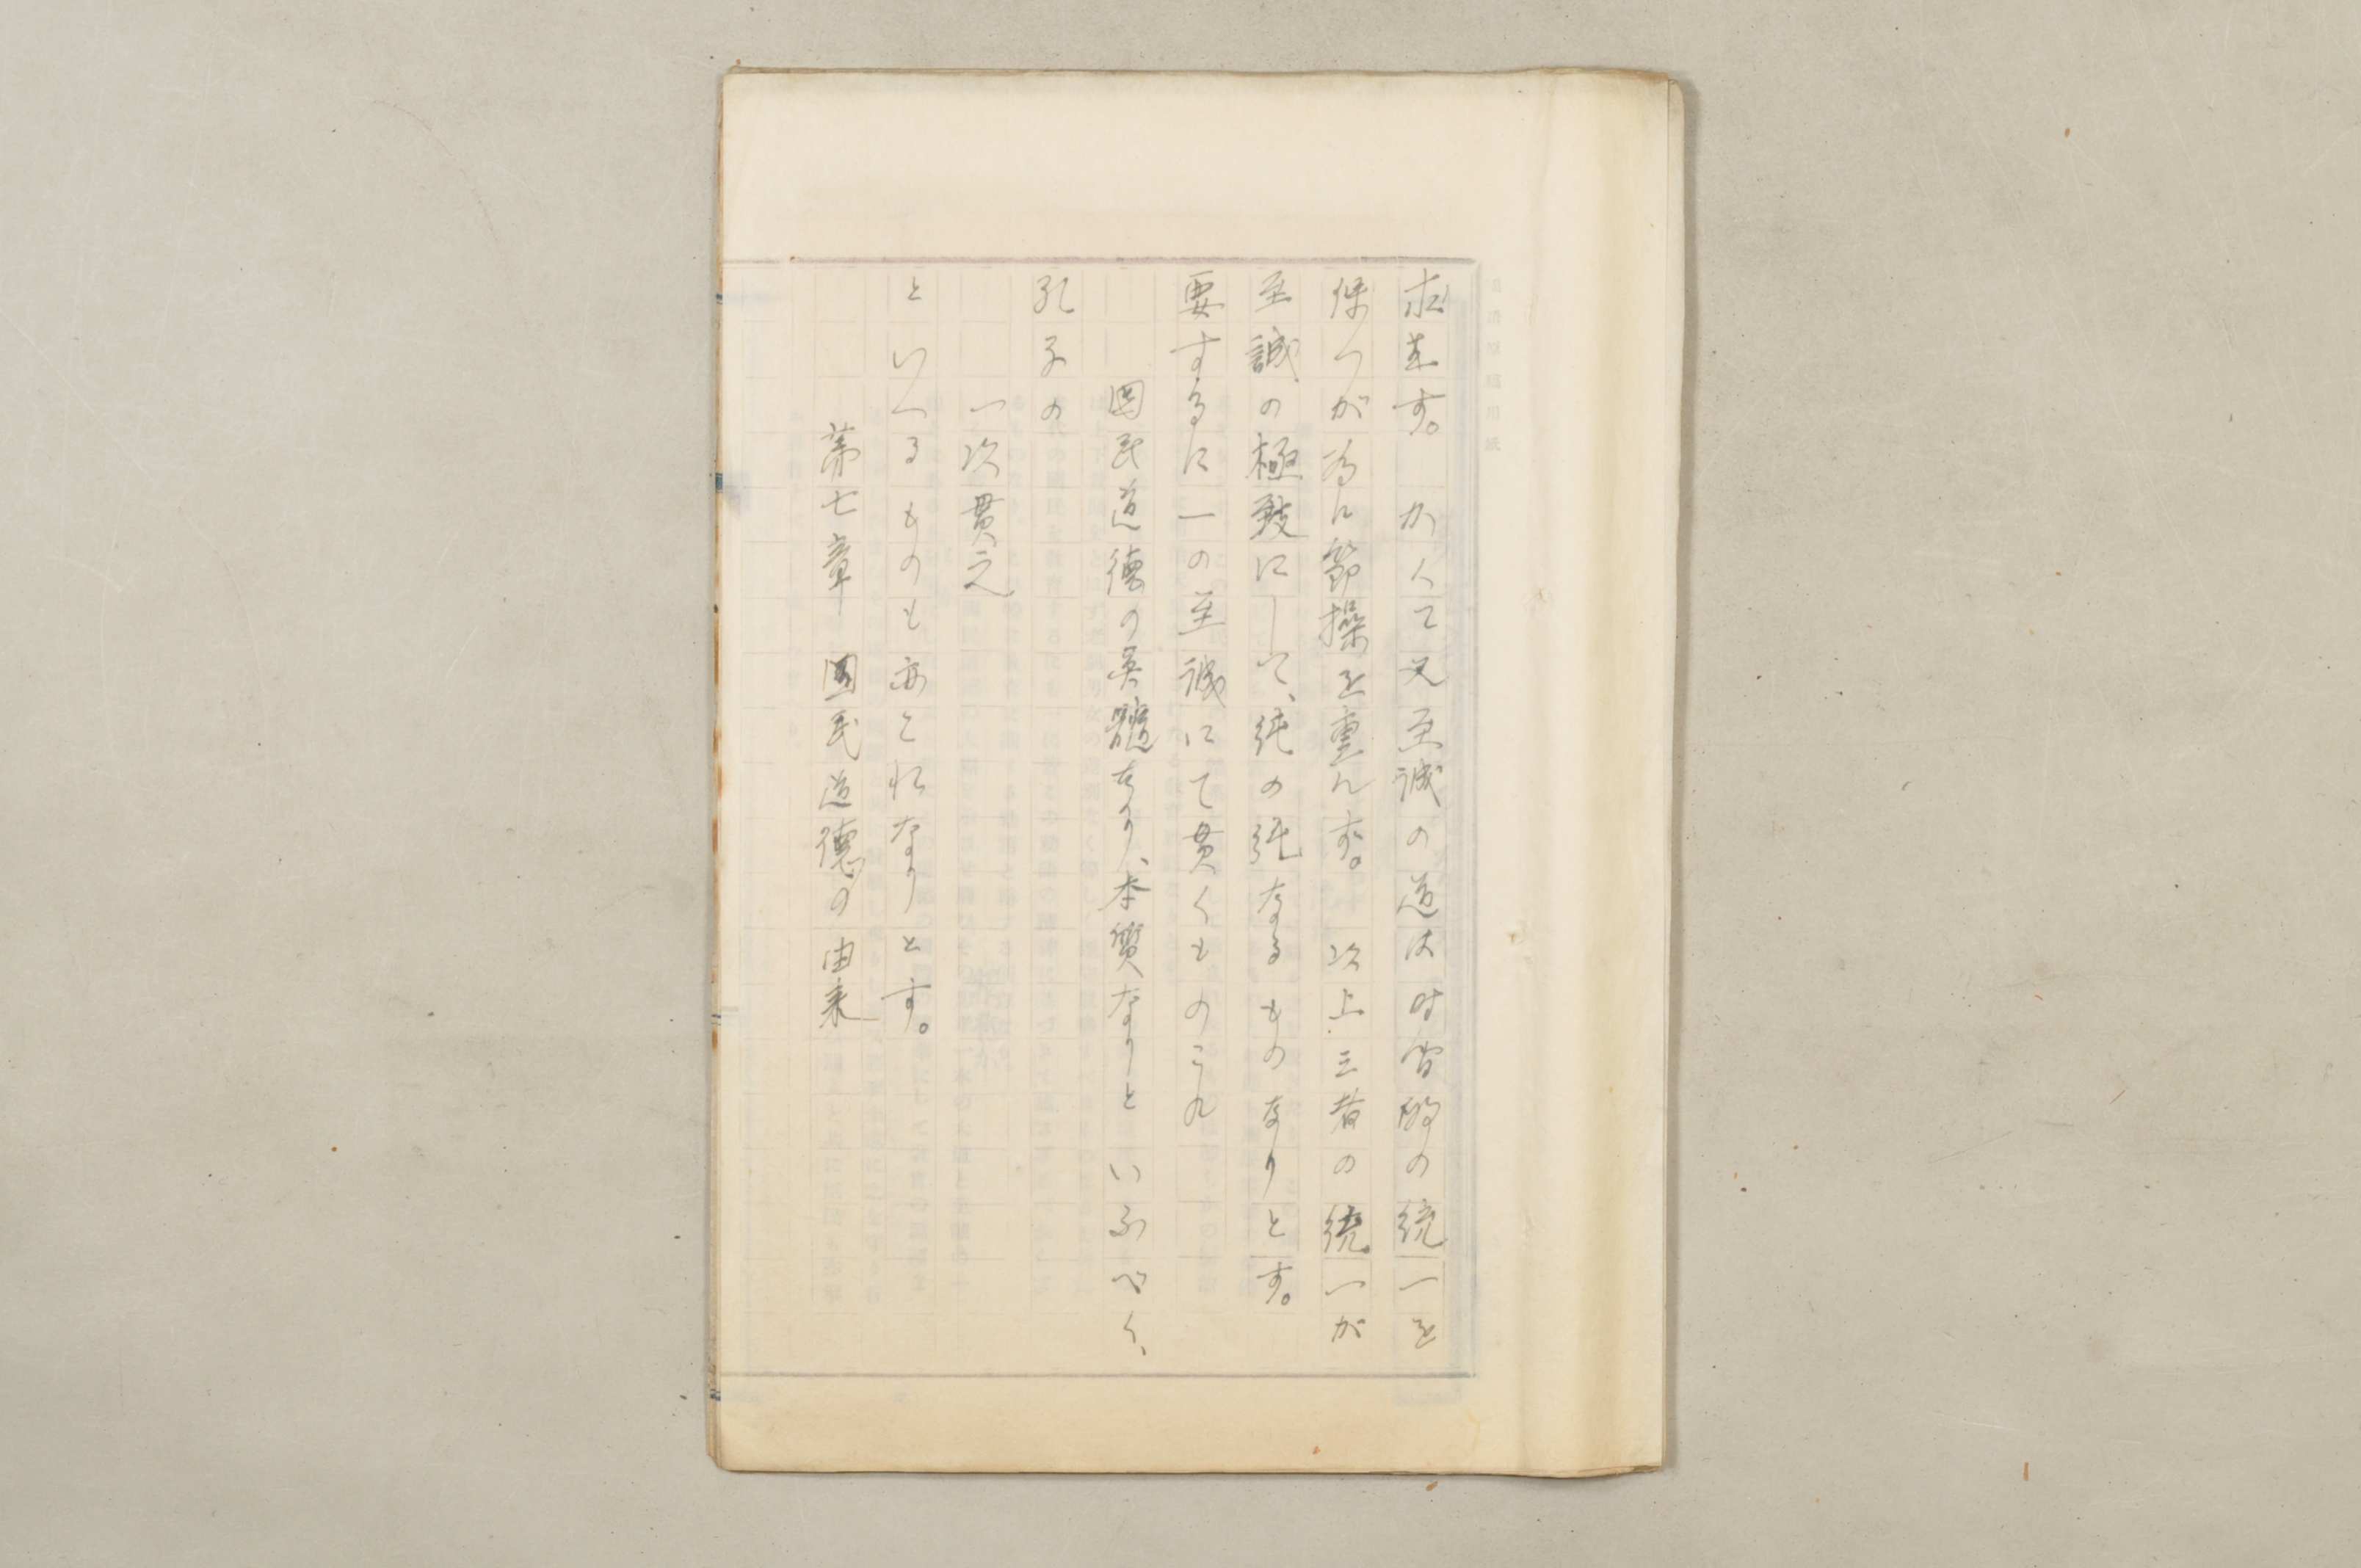 求む。　かくて又至誠の道は時間的の統一を
保つが為に節操を重んず。　以上三者の統一が
至誠の極致にして、純の純なるものなりとす。
要するに一の至誠にて貫くものこれ
国民道徳の真髄なり、本質なりといふべく、
孔子の
一以貫之
といへるものも亦これなりとす。
第七章　国民道徳の由来